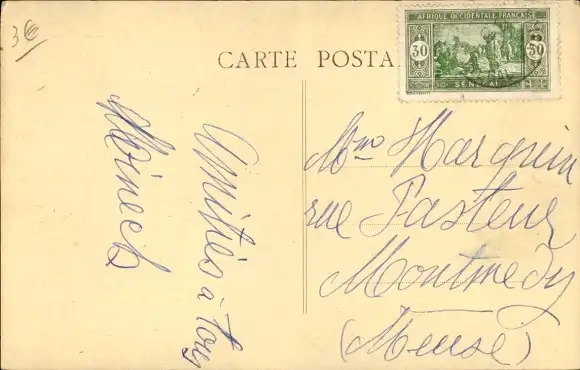 3€
CARTE POSTA
AFRIQUE OCCIDENTALE FRANÇAISE
30 30
SÉNÉGAL
Amitiés à tous
Mme Harquin
rue Pasteur
Montmédy
(Meuse)